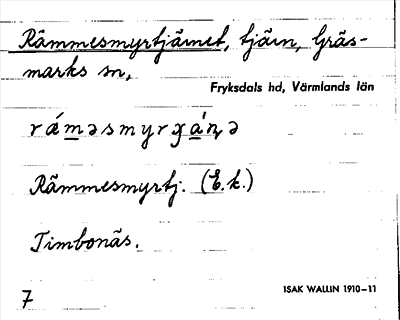 Råmmesmyrtjärnet, tjärn, Gräs-
marks sn,
Fryksdals hd, Värmlands län
Råmmesmyrtj. (E.k.)
Timbonäs.
7
ISAK WALLIN 1910–11